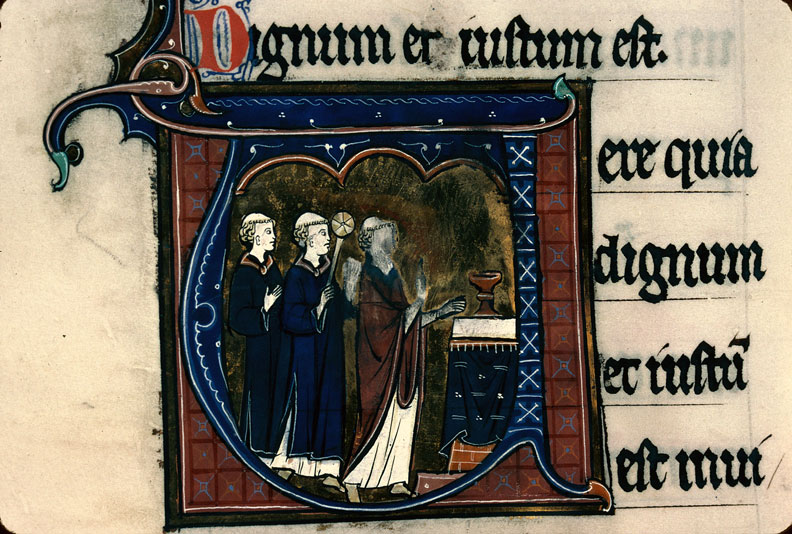 Dignum et iustum est.
Vere quia
dignum
et iustū
est inui